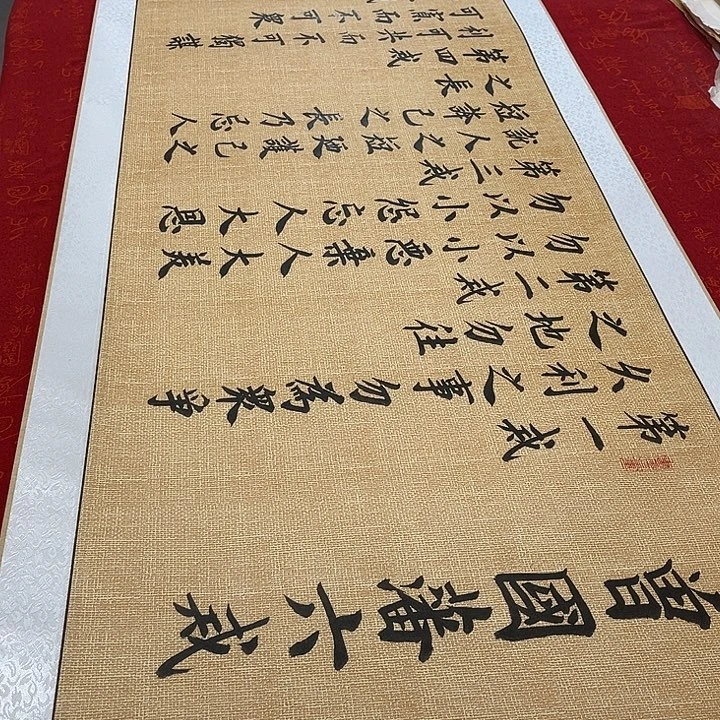 曾國藩六戒
第一戒
久利之事勿為眾爭
之地勿往
第二戒
勿以小惡棄人大美
勿以小怨忘人大恩
第三戒
說人之短護己之
短誇己之長乃忌人
之長
第四戒
利可共而不可獨謀
可寡而不可眾